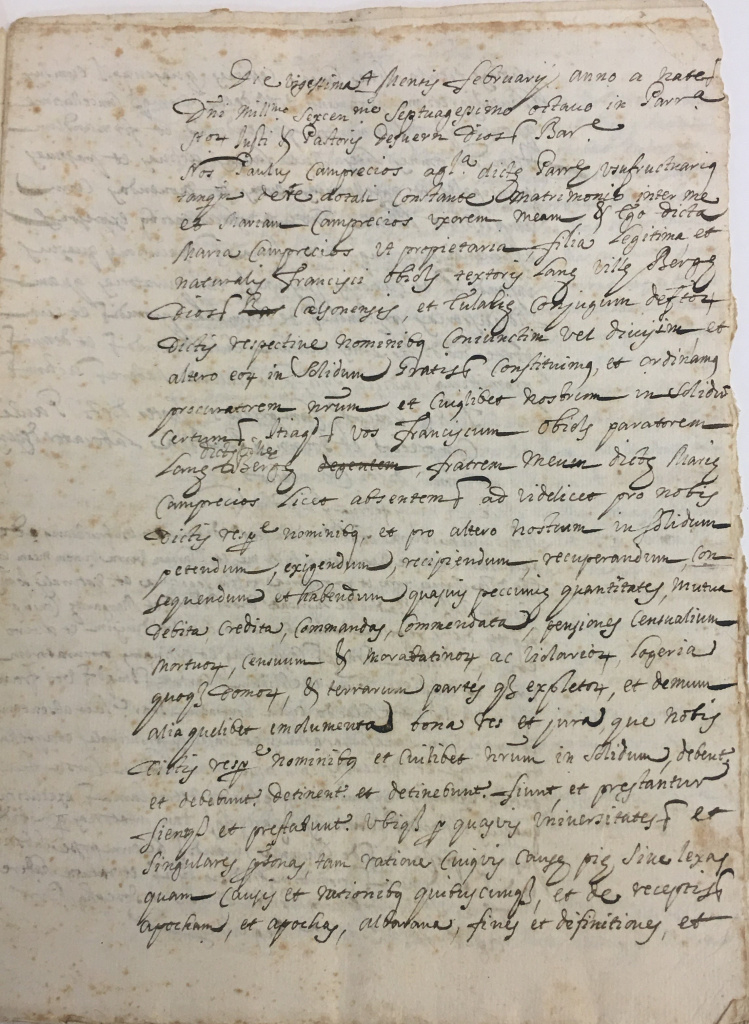 Die vigessima 4 Mensis februarij anno a nate
Dñi mill.mo sexcen.mo septuagessimo octavo in Parra
Stor Justi & Pastoris de Diosʃ Bar.e
Nos Paulus Camprecios dicte Parre usufructuariq
tanq. dotali constante Matrimonio inter me
et Mariam Camprecios uxorem meam & Ego dicta
Maria Camprecios ut propietaria, filia legitima et
naturalis francisci obiols textoris lane ville Berge
Diosʃ Celsonensis, et Eulalie conjugum
Dictis respective nominibq conjunctim vel divisim et
altero eor in solidum Gratis Constituimq, et ordinamq
procuratorem nrum et cuiglibet nostrum in solidũ
certum itaq vos franciscum obiols paratorem
dicte ville
lane Berge degentem, fratrem meum dicte Marie
Camprecios licet absentem ad videlicet pro nobis
Dictis resp.e nominibq et pro altero nostrum in solidum
petendum, exigendum, recipiendum, recuperandum, con
sequendum et habendum quasvis peccunie quantitates, mutua
debita credita, commandas, commendata, pensiones censualium
mortuor, censuum & morabatinor ac violarior, logeria
quoq domor, & terrarum partes q expletor, et demum
alia quelibet emolumenta bona res et jura que nobis
Dictis resp.e nominibq et cuilibet nrum in solidum, debent.
et debebunt. detinent. et detinebunt. fiunt, et prestantur
fienq et prestabunt. Ubiq p quasvis universitates et
singulares psonas tam ratione cuiqvis cause pie sive lexas
quam causis et rationibq quibuscunq, et de receptis
apocham, et apochas, albarana, fines et definitiones, et